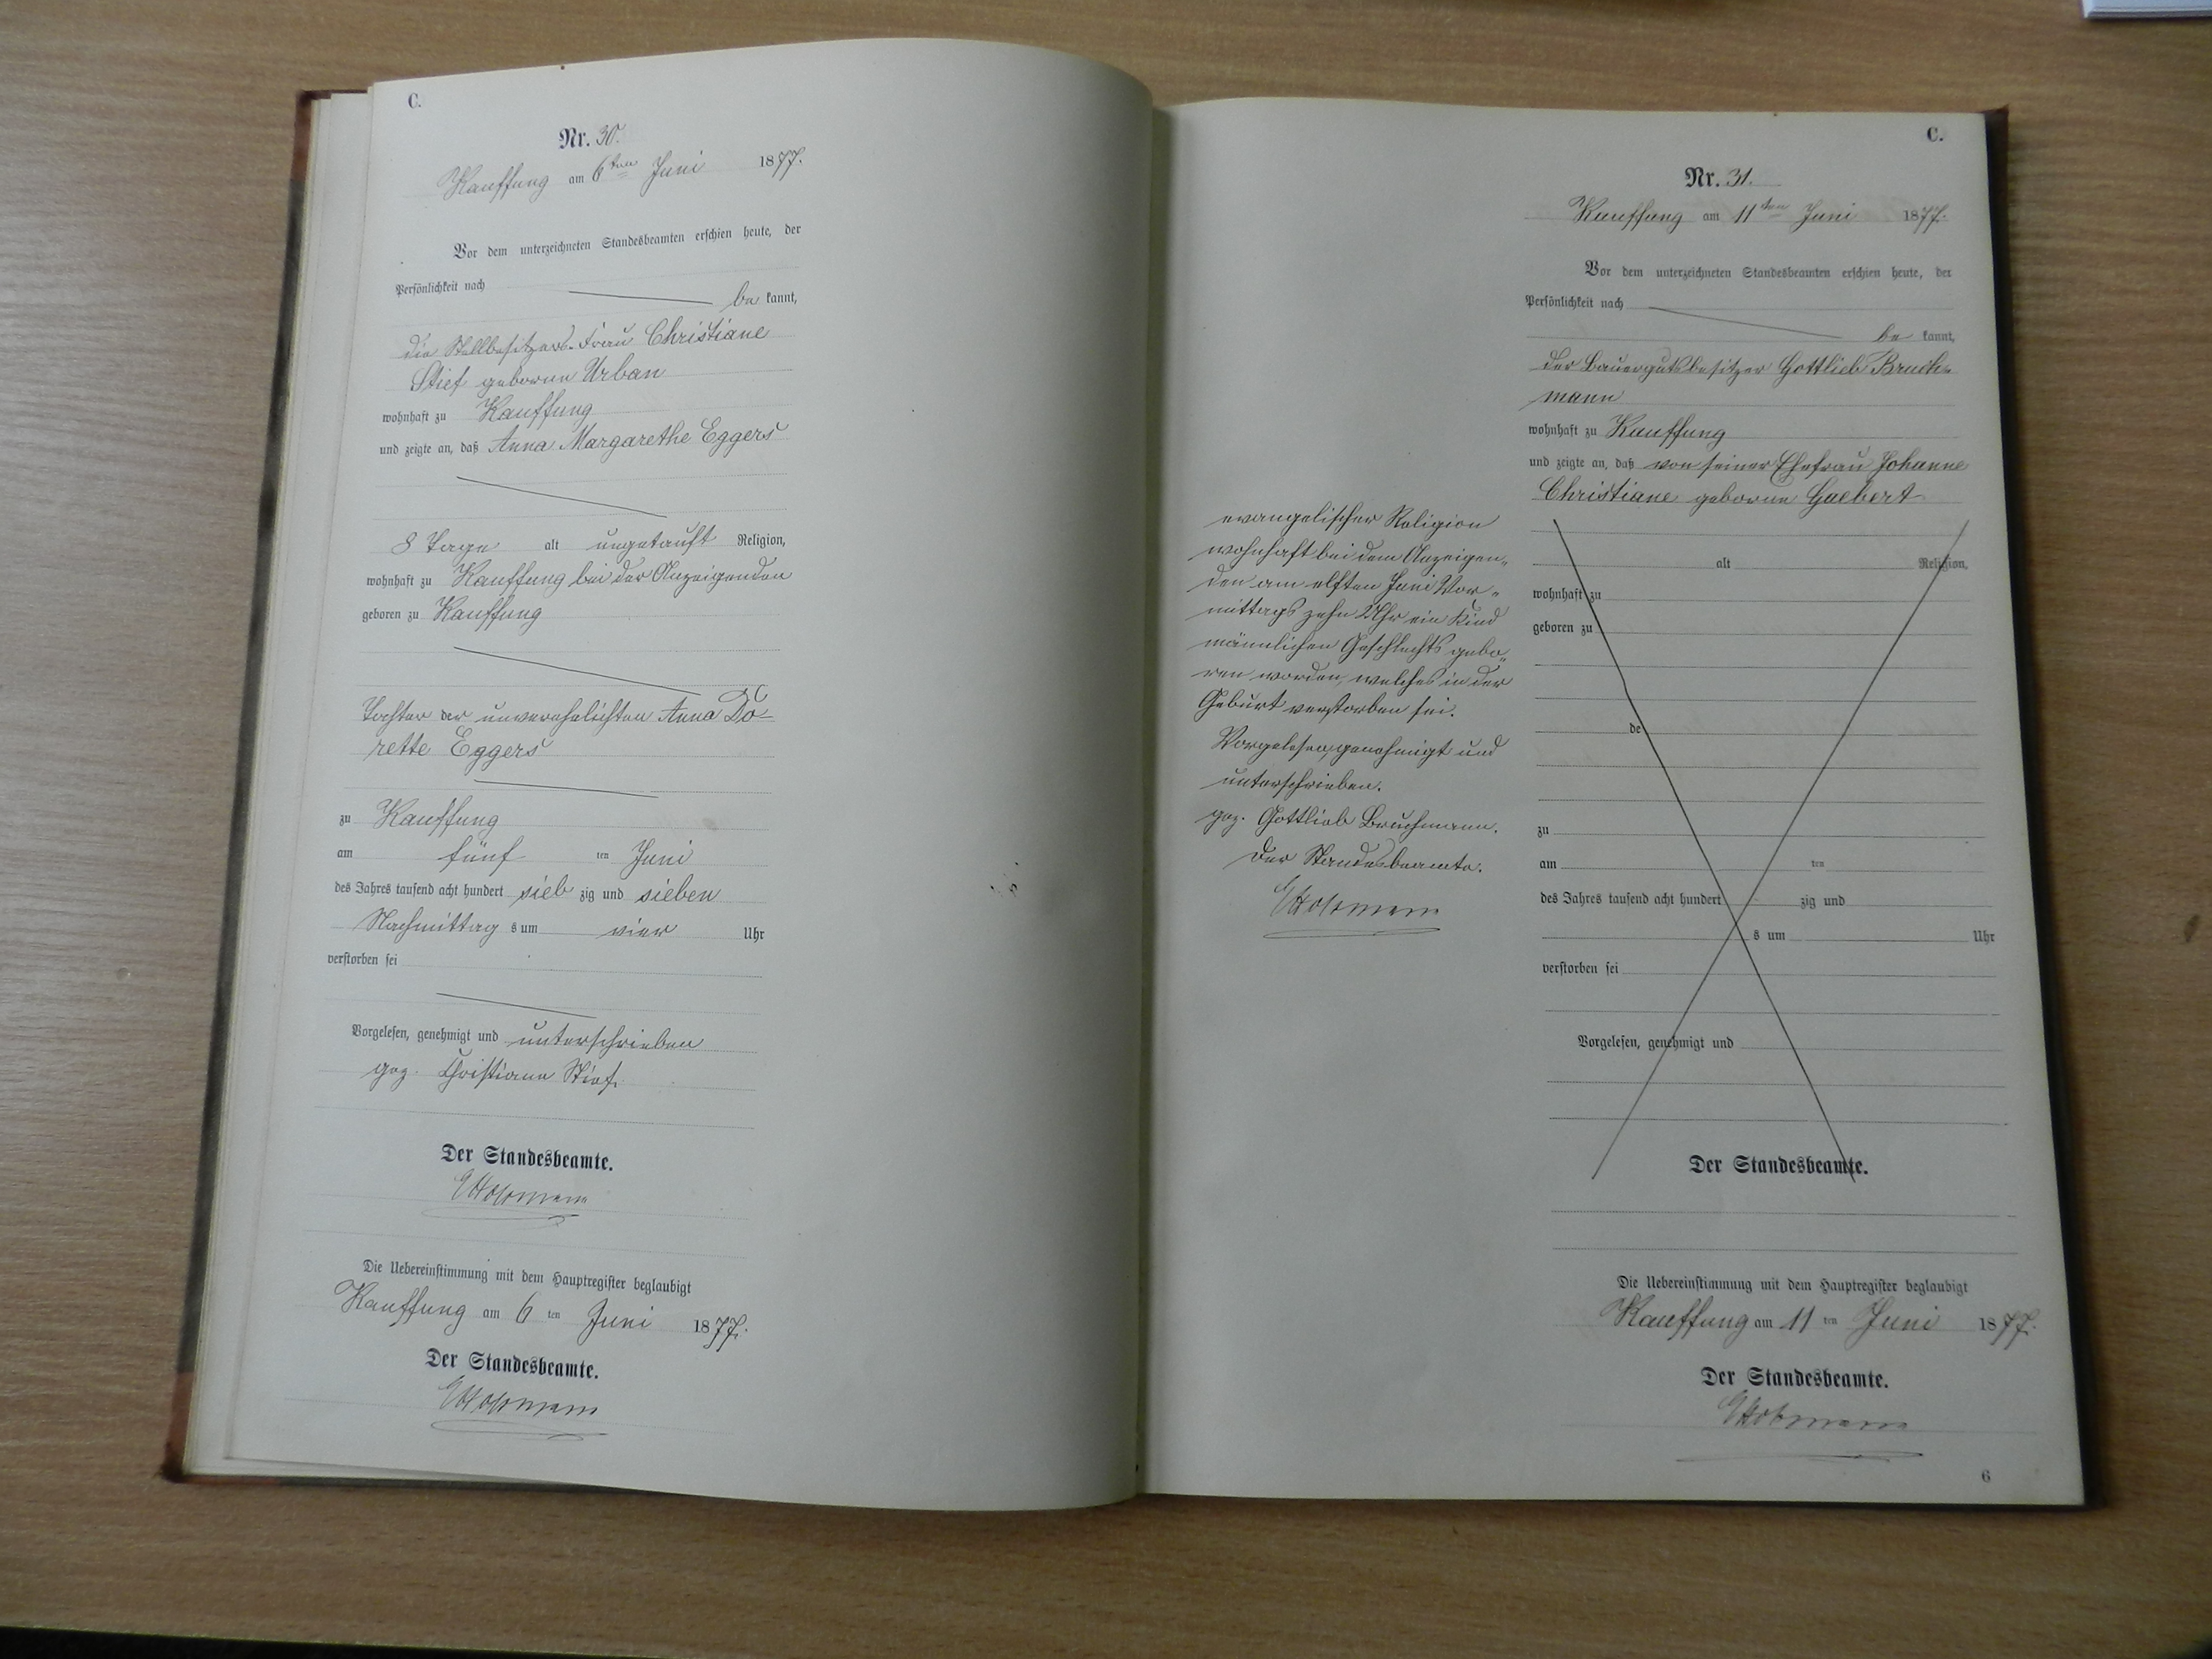 C.
Nr. 30.
Kauffung am 6ten Juni 1877.
Vor dem unterzeichneten Standesbeamten erschien heute, der
Persönlichkeit nach
be kannt,
die Stellbesitzers-Frau Christiane
Stief geborne Urban
wohnhaft zu Kauffung
und zeigte an, daß Anna Margarethe Eggers
8 Tage alt ungetauft Religion,
wohnhaft zu Kauffung bei der Anzeigenden
geboren zu Kauffung
Tochter der unverehelichten Anna Do-
rette Eggers
zu Kauffung
am fünf ten Juni
des Jahres tausend acht hundert sieb zig und sieben
Nachmittag s um vier Uhr
verstorben sei
Vorgelesen, genehmigt und unterschrieben
gez. Christiane Stief.
Der Standesbeamte.
Die Uebereinstimmung mit dem Hauptregister beglaubigt
Kauffung am 6 ten Juni 1877.
Der Standesbeamte.
C.
Nr. 31.
Kauffung am 11ten Juni 1877.
Vor dem unterzeichneten Standesbeamten erschien heute, der
Persönlichkeit nach
be kannt,
der Bauergutsbesitzer Gottlieb Bruch-
mann
wohnhaft zu Kauffung
und zeigte an, daß von seiner Ehefrau Johanne
Christiane geborne Gaebert
alt Religion,
wohnhaft zu
geboren zu
de
zu
am ten
des Jahres tausend acht hundert zig und
s um Uhr
verstorben sei
Vorgelesen, genehmigt und
Der Standesbeamte.
evangelischer Religion
wohnhaft bei dem Anzeigen-
den am elften Juni Vor-
mittags zehn Uhr ein Kind
männlichen Geschlechts gebo-
ren worden, welches in der
Geburt verstorben sei.
Vorgelesen, genehmigt und
unterschrieben.
gez. Gottlieb Bruchmann.
Der Standesbeamte.
Die Uebereinstimmung mit dem Hauptregister beglaubigt
Kauffung am 11 ten Juni 1877.
Der Standesbeamte.
6